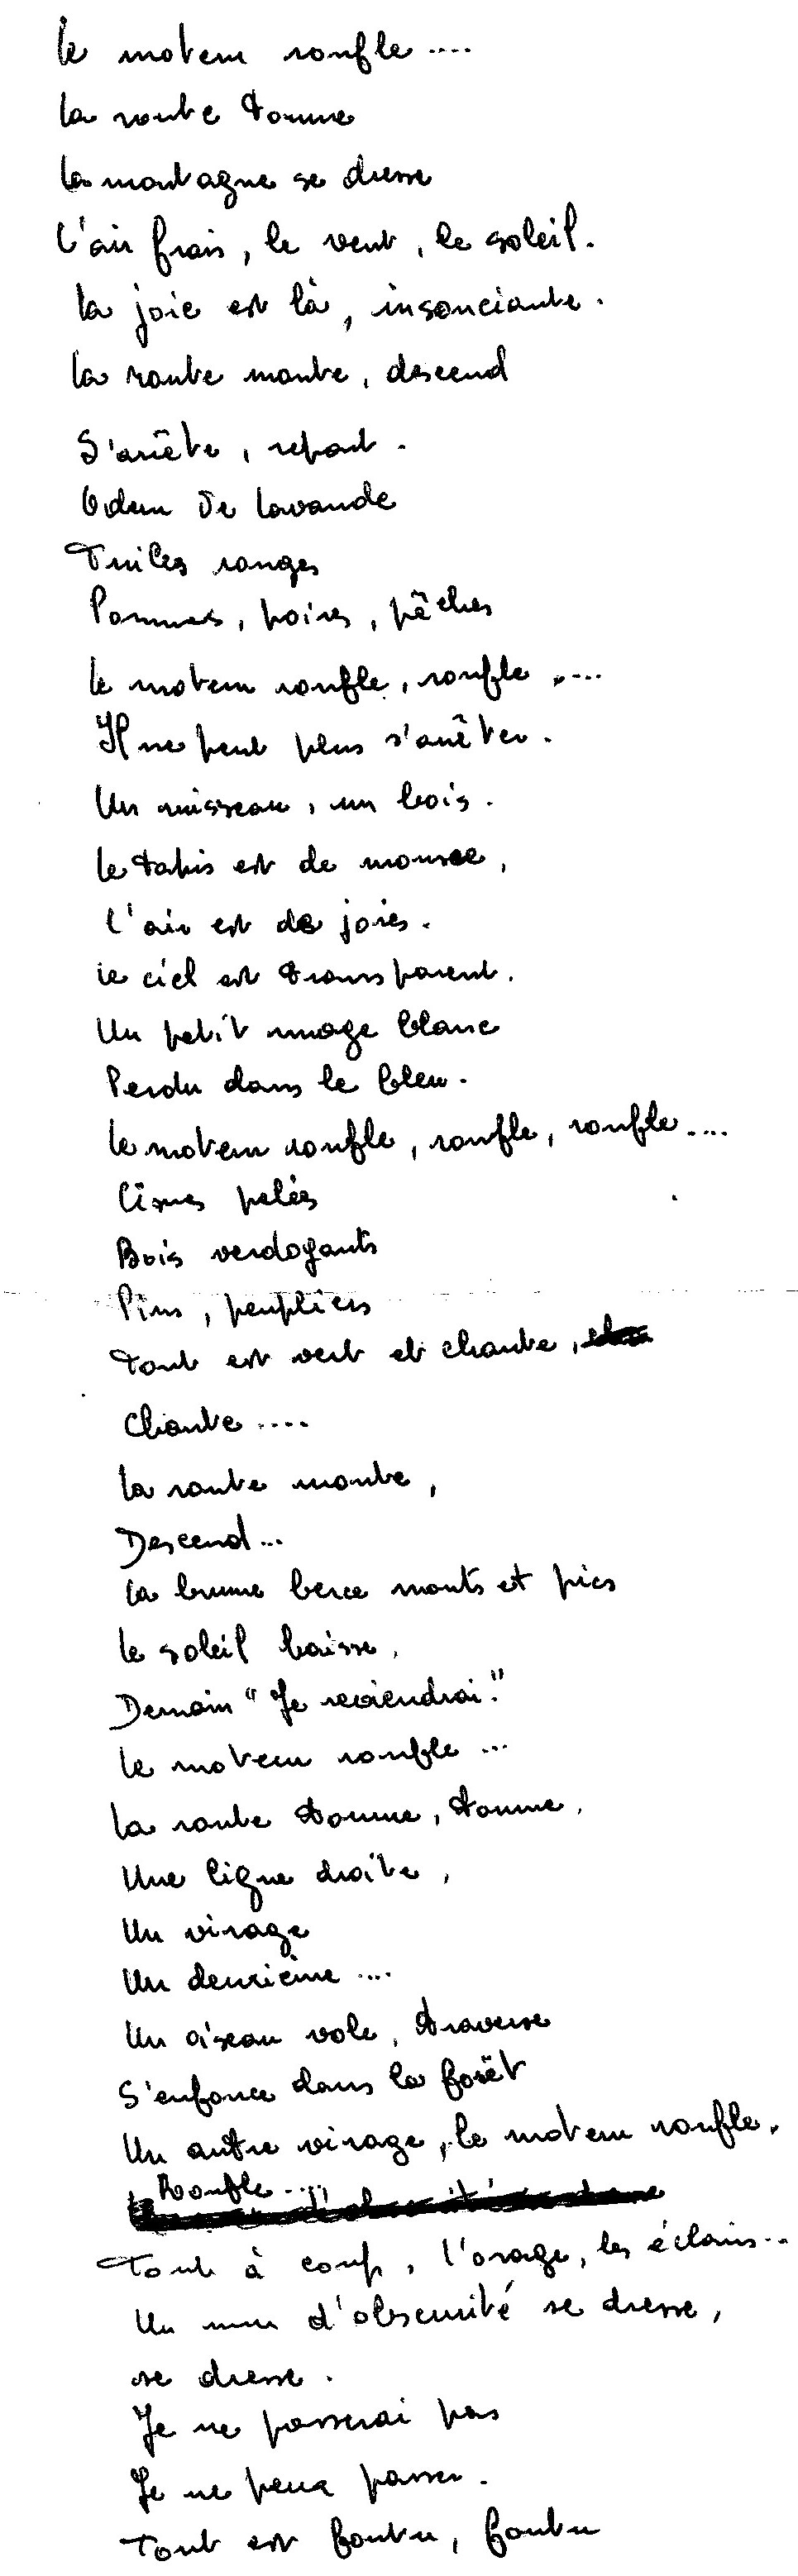 Le moteur ronfle ....
La route tourne
La montagne se dresse
L'air frais, le vent, le soleil.
La joie est là, insonciante.
La route monte, descend
S'arrête, repart.
Odeur de lavande
Tuiles rouges
Pommes, poires, pêches
Le moteur ronfle, ronfle ....
Il ne peut plus s'arrêter.
Un ruisseau, un bois.
Le tapis est de mousse,
L'air est de joies.
Le ciel est transparent.
Un petit nuage blanc
Perdu dans le bleu.
Le moteur ronfle, ronfle, ronfle....
Cîmes pelées
Bois verdoyants
Pins, peupliers
Tout est vert et chante,
Chante ....
La route monte,
Descend...
La brume berce monts et pics
Le soleil baisse,
Demain "Je reviendrai."
Le moteur ronfle ...
La route tourne, tourne,
Une ligne droite,
Un virage
Un deuxième ....
Un oiseau vole, traverse
S'enfonce dans la forêt
Un autre virage, le moteur ronfle.
Ronfle ....
Tout à coup, l'orage, les éclairs...
Un mur d'obscurité se dresse,
se dresse.
Je ne passerai pas
Je ne peux passer.
Tout est foutu, foutu